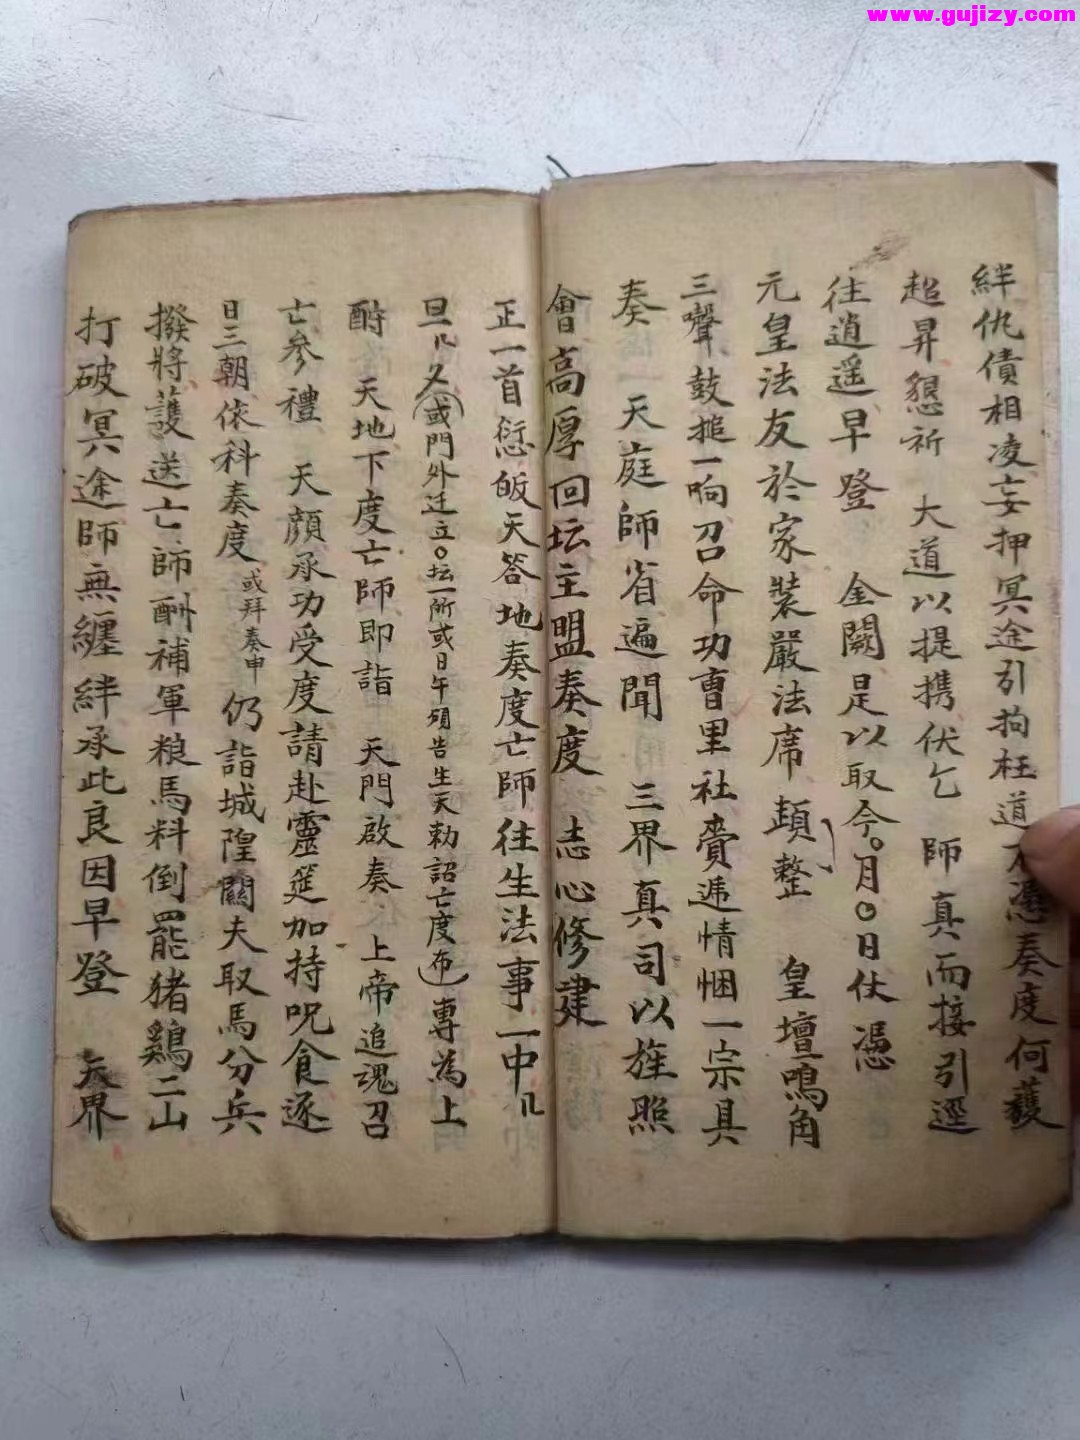 www.gujizy.com
絆仇債相凌妄押冥途引拘枉道不憑奏度何獲
超昇懇祈 大道以提携伏乞 師真而接引逕
往逍遥早登 金闕是以取今○月○日仗憑
元皇法友於家裝嚴法席頓整 皇壇鳴角
三聲鼓搥一响召命功曹里社賫逓情悃一宗具
奏 天庭師省遍聞 三界真司以旌照
會高厚回坛主盟奏度 志心修建
正一首愆皈天答地奏度亡師往生法事一中
旦 又(或門外迁立○坛一所或日午頒告生天勅詔亡度布)專為上
酧 天地下度亡師即詣 天門啟奏 上帝追魂召
亡参禮 天顔承功受度請赴靈筵加持呪食逐
日三朝依科奏度 或拜奏申 仍詣城隍關夫取馬分兵
撥將護送亡師酬補軍粮馬料倒罷猪鷄二山
打破冥途師無纏絆承此良因早登 天界